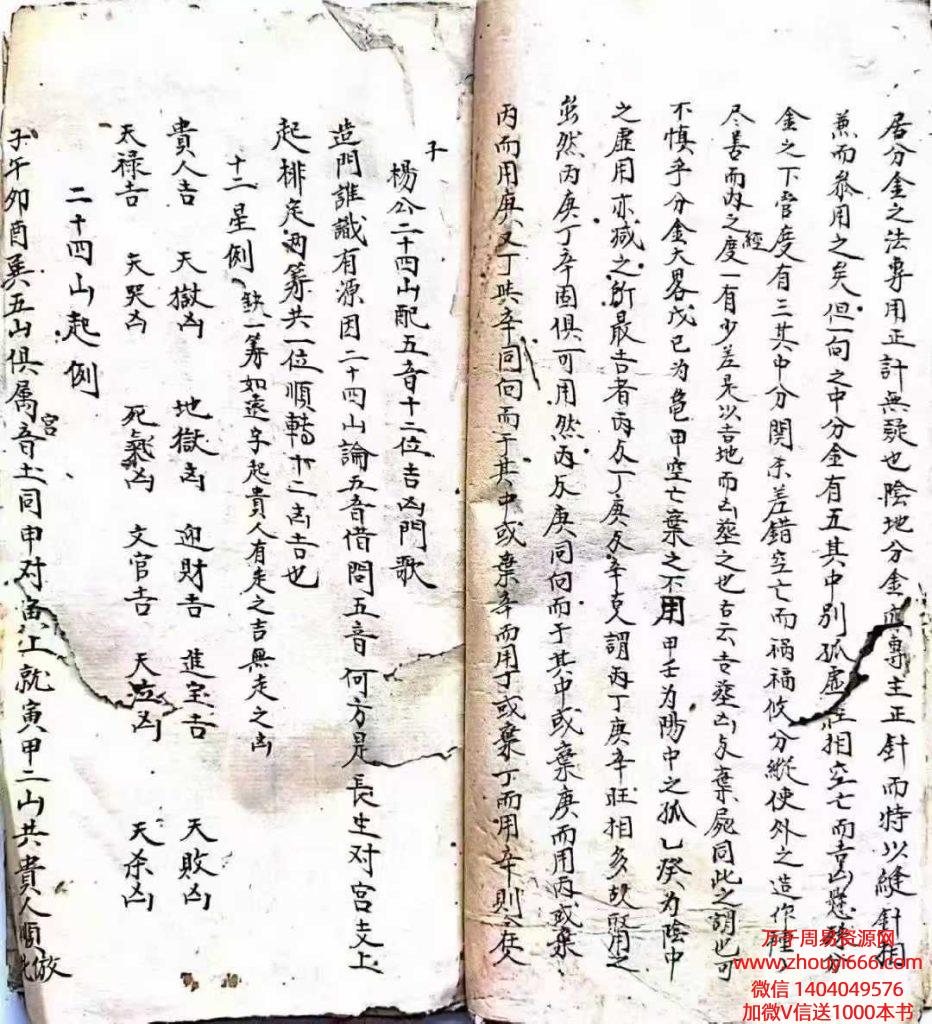 居分金之法專用正計無疑也陰地分金專主正針而特以縫針相
兼而參用之矣但一向之中分金有五其中別孤虛相空亡而吉凶懸殊分
金之下管度有三其中分関差錯空亡而祸福攸分縱使外之造作種〻
尽善而内之經度一有少差是以吉地而凶葬之也古云吉葬凶与棄屍同此之謂也可
不慎乎分金大畧戊己为龜甲空亡棄之不用甲壬为陽中之孤乙癸为陰中
之虛用亦减之所最吉者丙与丁庚与辛克謂丙丁庚辛旺相多故取用之
虽然丙庚丁辛固俱可用然丙与庚同向而于其中或棄庚而用丙或棄
丙而用庚又丁共辛同向而于其中或棄辛而用丁或棄丁而用辛則
子
楊公二十四山配五音十二位吉凶門歌
造門誰識有源因二十四山論五音借問五音何方是長生对宮支上
起排定两筹共一位順轉十二凶吉也
十二星例 缺一筹如遠字起貴人有走之吉無走之凶
貴人吉 天獄凶 地獄凶 迎財吉 進宝吉 天敗凶
天禄吉 天哭凶 死氣凶 文官吉 天立凶 天杀凶
二十四山起例
子午卯酉巽五山俱属宮音土同申对宮上就寅甲二山共貴人順 倣
万千周易资源网
www.zhouyi666.com
微信 1404049576
加微V信送1000本书